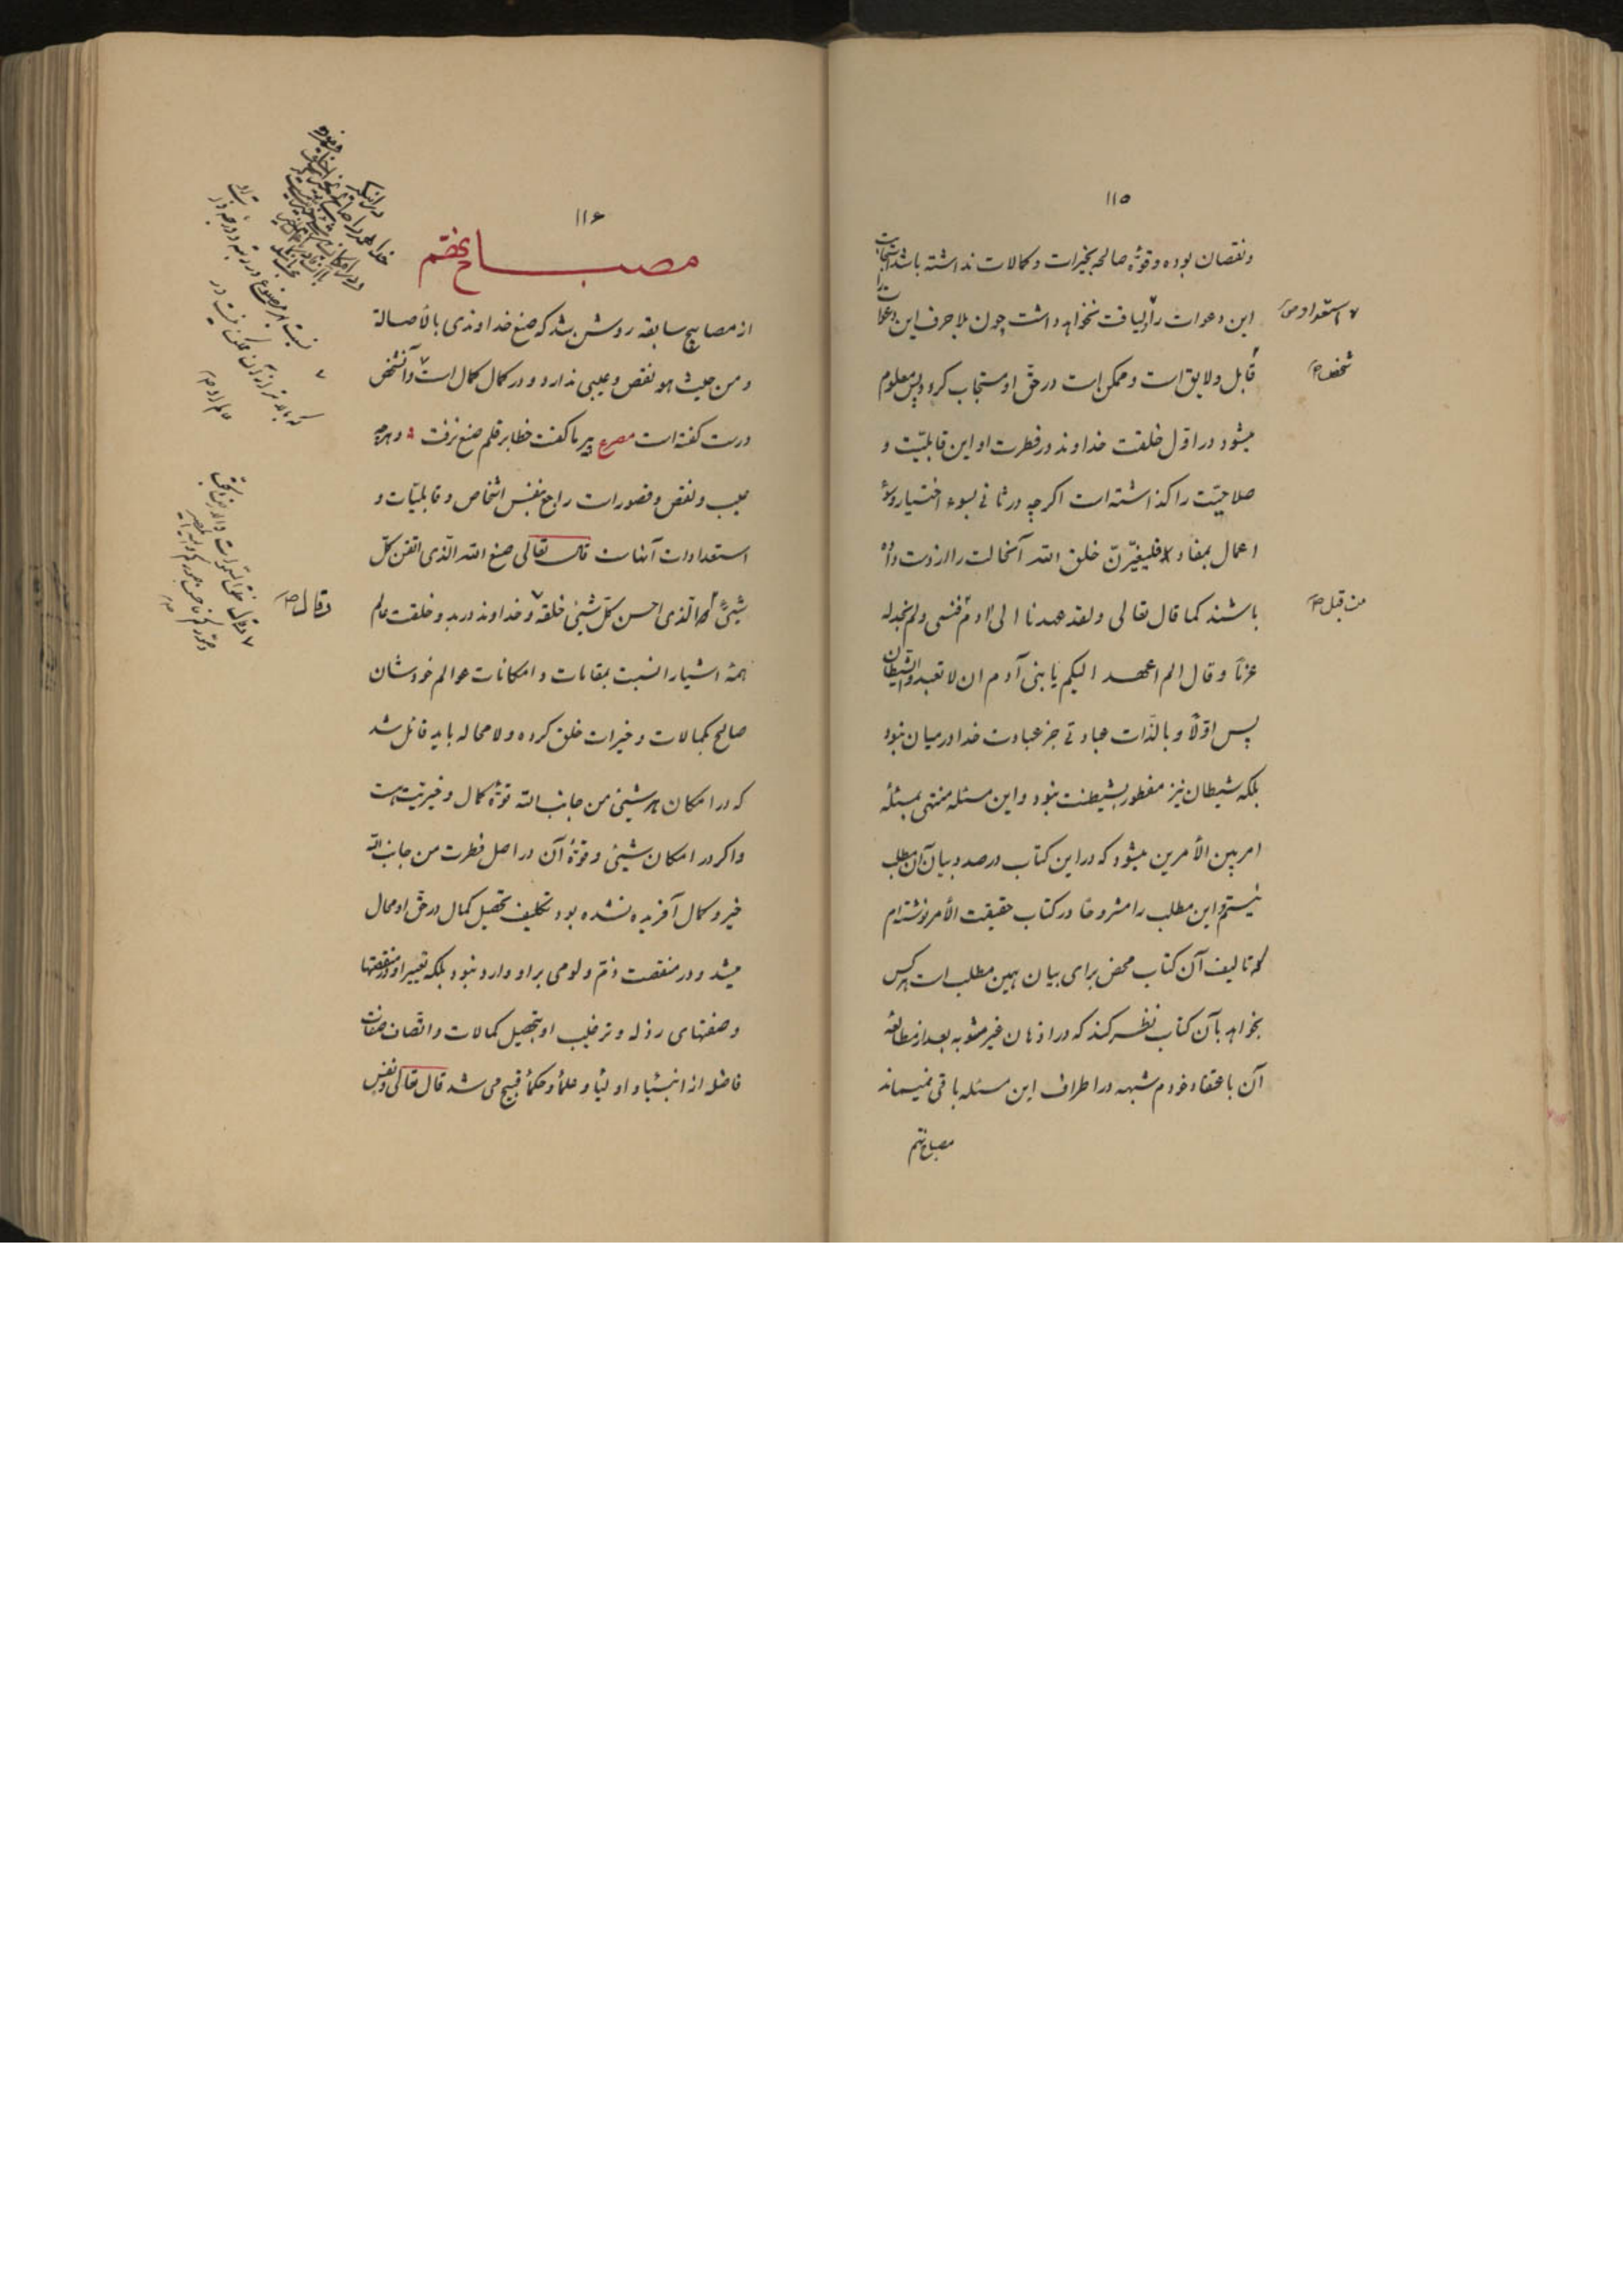 ١١٥
ونقصان بوده و قوّه صالحه بخیرات و کمالات نداشته باشد استجابت
این دعوات را لیاقت نخواهد داشت چون بلا حرف این دعوات را
۷ استعداد و ص
قابل و لایق است و ممکن است در حقّ او مستجاب گردد پس معلوم
شخص ص
میشود در اوّل خلقت خداوند در فطرت او این قابلیّت و
صلاحیّت را گذاشته است اگرچه در ثانی بسوء اختیار و سوء
اعمال بمفاد فلیغیّرنّ خلق الله آنحالت را از دست داده
باشند کما قال تعالی ولقد عهدنا الی ادم فنسی ولم نجد له
من قبل ص
عزماً و قال الم اعهد الیکم یا بنی آدم ان لا تعبدوا الشیطان
پس اوّلاً و بالذّات عبادتی جز عبادت خدا در میان نبود
بلکه شیطان نیز مفطور بشیطنت نبود و این مسئله منتهی بمسئلهٔ
امر بین الأمرین میشود که در این کتاب در صدد بیان آن مطلب
نیستم و این مطلب را مشروحاً در کتاب حقیقت الأمر نوشته‌ام
که تالیف آن کتاب محض برای بیان همین مطلب است هر کس
بخواهد بآن کتاب نظر کند که در اذهان غیر مشوبه بعد از مطالعهٔ
آن باعتقاد خودم شبهه در اطراف این مسئله باقی نمیماند
مصباح هفتم
١١۶
مصباح هفتم
از مصابیح سابقه روشن شد که صنع خداوندی بالأصالة
و من حیث هو نقص و عیبی ندارد و در کمال کمال است ۷ و آنشخص
درست گفته است مصرع پیر ما گفت خطا بر قلم صنع نرفت و هر چه
عیب و نقص و قصور است راجع بنفس اشخاص و قابلیّات و
استعدادات آنهاست قال تعالی صنع الله الّذی اتقن کلّ
شیئ الّذی احسن کلّ شیئی خلقه ۷ و خداوند در بدو خلقت عالم
وقال ص
همهٔ اشیا را نسبت بمقامات و امکانات عوالم خودشان
صالح بکمالات و خیرات خلق کرده و لا محاله باید قائل شد
که در امکان هر شیئی من جانب الله قوّهٔ کمال و خیریّت هست
و اگر در امکان شیئی و قوّهٔ آن در اصل فطرت من جانب الله
خیر و کمال آفریده نشده بود تکلیف تحصیل کمال در حقّ او محال
میشد و در منقصت ذمّ و لومی بر او وارد نبود بلکه تعییر او در منقصتها
و صفتهای رذله و ترغیب او بتحصیل کمالات و اتّصاف صفات
فاضله از انبیاء و اولیاء و علماء و حکماء قبیح می شد قال تعالی ونفس